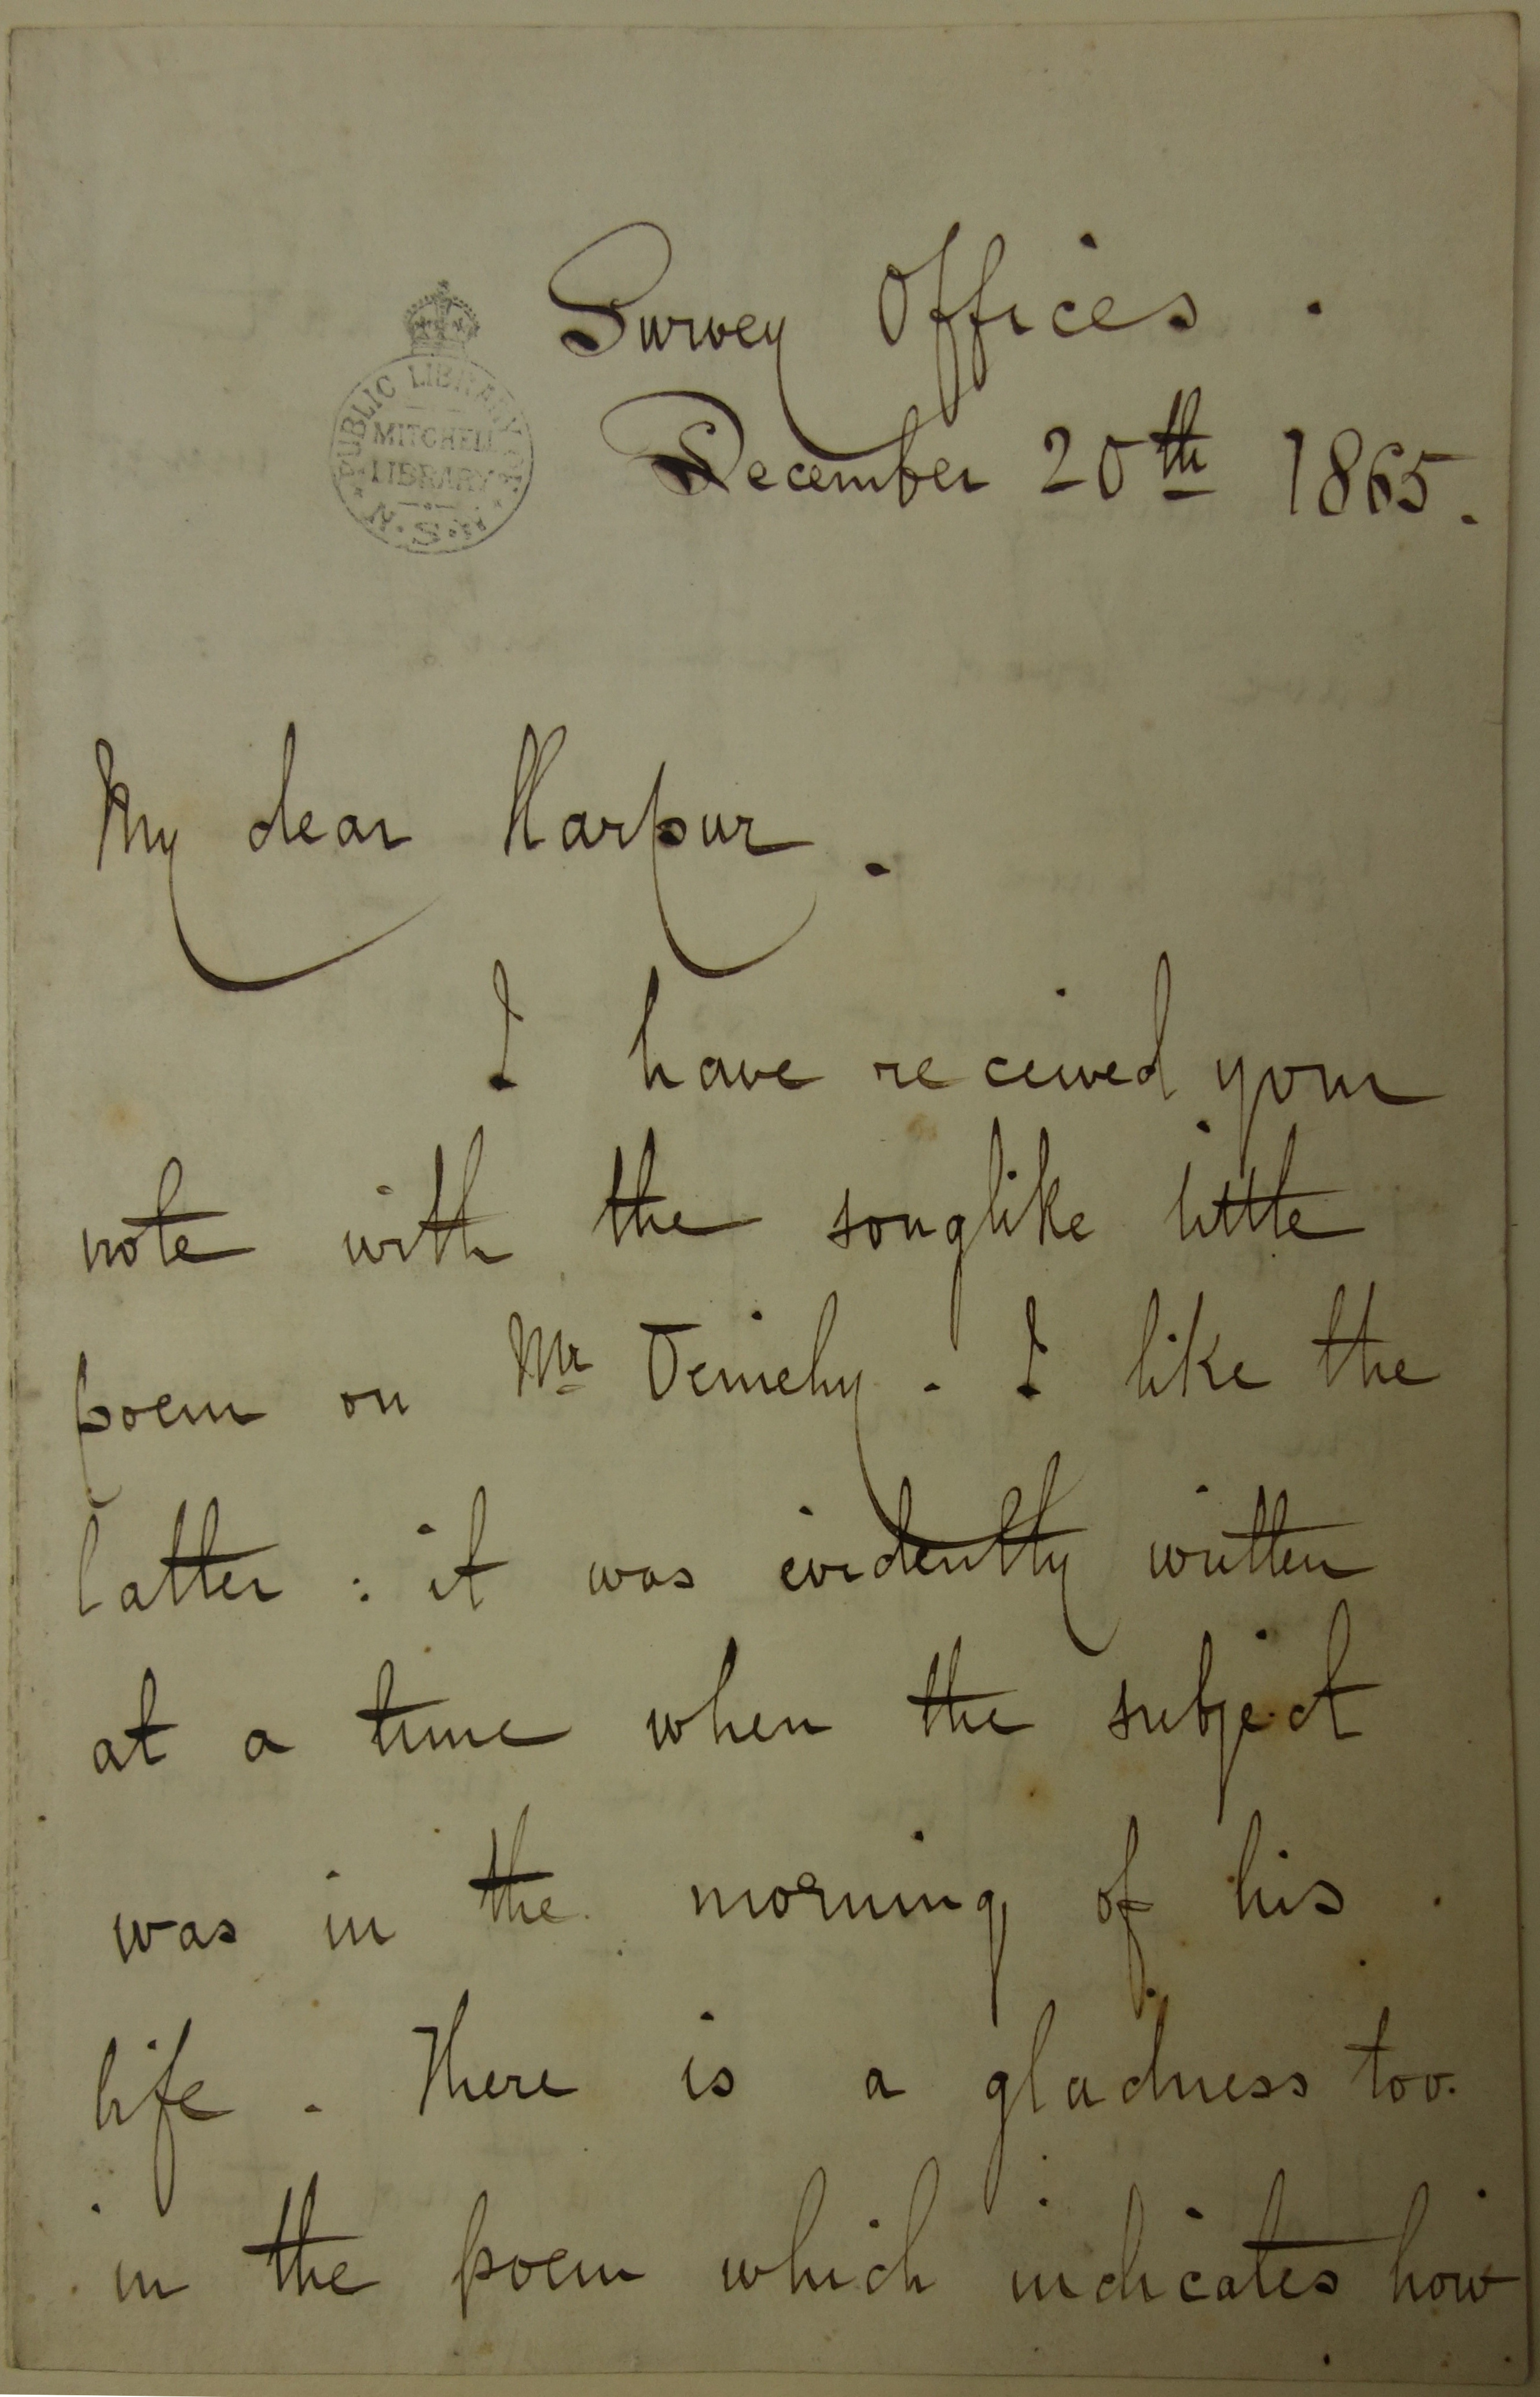 Survey Offices.
December 20th 1865.
PUBLIC LIBRARY OF
MITCHELL
LIBRARY
N.S.W.
My dear Harpur.
I have received your
note with the songlike little
poem on Mr Deniehy. I like the
latter: it was evidently written
at a time when the subject
was in the morning of his
life. There is a gladness too
in the poem which indicates how